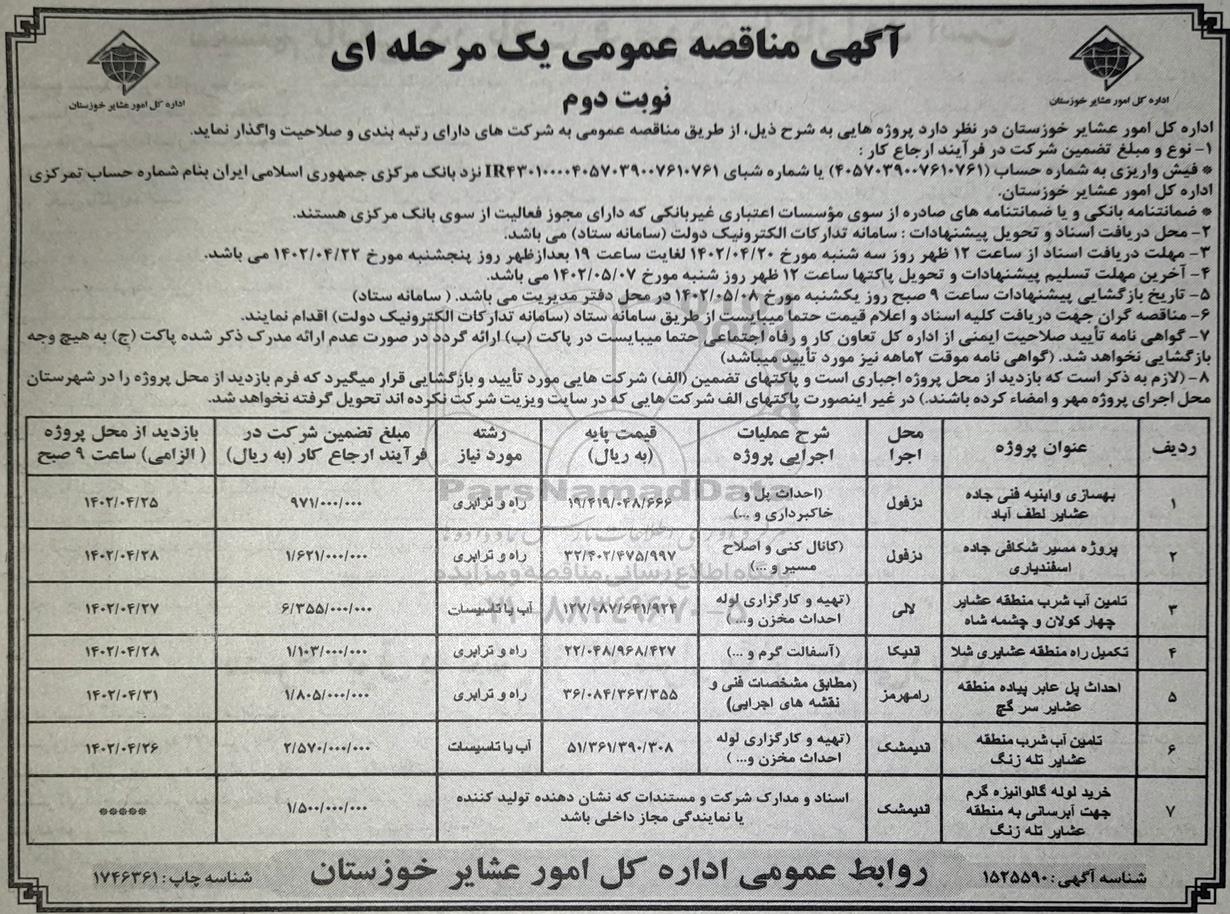 آگهی مناقصه عمومی یک مرحله ای
نوبت دوم
اداره کل امور عشایر خوزستان
اداره کل امور عشایر خوزستان
اداره کل امور عشایر خوزستان در نظر دارد پروژه هایی به شرح ذیل، از طریق مناقصه عمومی به شرکت های دارای رتبه بندی و صلاحیت واگذار نماید.
۱- نوع و مبلغ تضمین شرکت در فرآیند ارجاع کار :
* فیش واریزی به شماره حساب (۴۰۵۷۰۳۹۰۰۷۶۱۰۷۶۱) یا شماره شبای IR۴۳۰۱۰۰۰۰۴۰۵۷۰۳۹۰۰۷۶۱۰۷۶۱ نزد بانک مرکزی جمهوری اسلامی ایران بنام شماره حساب تمرکزی
اداره کل امور عشایر خوزستان.
* ضمانتنامه بانکی و یا ضمانتنامه های صادره از سوی مؤسسات اعتباری غیربانکی که دارای مجوز فعالیت از سوی بانک مرکزی هستند.
۲- محل دریافت اسناد و تحویل پیشنهادات : سامانه تدارکات الکترونیک دولت (سامانه ستاد) می باشد.
۳- مهلت دریافت اسناد از ساعت ۱۲ ظهر روز سه شنبه مورخ ۱۴۰۲/۰۴/۲۰ لغایت ساعت ۱۹ بعدازظهر روز پنجشنبه مورخ ۱۴۰۲/۰۴/۲۲ می باشد.
۴- آخرین مهلت تسلیم پیشنهادات و تحویل پاکتها ساعت ۱۲ ظهر روز شنبه مورخ ۱۴۰۲/۰۵/۰۷ می باشد.
۵- تاریخ بازگشایی پیشنهادات ساعت ۹ صبح روز یکشنبه مورخ ۱۴۰۲/۰۵/۰۸ در محل دفتر مدیریت می باشد. ( سامانه ستاد)
۶- مناقصه گران جهت دریافت کلیه اسناد و اعلام قیمت حتما میبایست از طریق سامانه ستاد (سامانه تدارکات الکترونیک دولت) اقدام نمایند.
۷- گواهی نامه تأیید صلاحیت ایمنی از اداره کل تعاون کار و رفاه اجتماعی حتما میبایست در پاکت (ب) ارائه گردد در صورت عدم ارائه مدرک ذکر شده پاکت (ج) به هیچ وجه
بازگشایی نخواهد شد. (گواهی نامه موقت ۲ماهه نیز مورد تأیید میباشد)
۸- (لازم به ذکر است که بازدید از محل پروژه اجباری است و پاکتهای تضمین (الف) شرکت هایی مورد تأیید و بازگشایی قرار میگیرد که فرم بازدید از محل پروژه را در شهرستان
محل اجرای پروژه مهر و امضاء کرده باشند.) در غیر اینصورت پاکتهای الف شرکت هایی که در سایت ویزیت شرکت نکرده اند تحویل گرفته نخواهد شد.
ردیف عنوان پروژه محل اجرا شرح عملیات اجرایی پروژه قیمت پایه (به ریال) رشته مورد نیاز مبلغ تضمین شرکت در فرآیند ارجاع کار (به ریال) بازدید از محل پروژه ( الزامی) ساعت ۹ صبح
۱ بهسازی وابنیه فنی جاده عشایر لطف آباد دزفول (احداث پل و خاکبرداری و ...) ۱۹/۴۱۹/۰۴۸/۶۶۶ راه و ترابری ۹۷۱/۰۰۰/۰۰۰ ۱۴۰۲/۰۴/۲۵
۲ پروژه مسیر شکافی جاده اسفندیاری دزفول (کانال کنی و اصلاح مسیر و ...) ۳۲/۴۰۲/۴۷۵/۹۹۷ راه و ترابری ۱/۶۲۱/۰۰۰/۰۰۰ ۱۴۰۲/۰۴/۲۸
۳ تامین آب شرب منطقه عشایر چهار کولان و چشمه شاه لالی (تهیه و کارگزاری لوله احداث مخزن و...) ۱۲۷/۰۸۷/۶۴۱/۹۲۴ آب یا تاسیسات ۶/۳۵۵/۰۰۰/۰۰۰ ۱۴۰۲/۰۴/۲۷
۴ تکمیل راه منطقه عشایری شلا اندیکا (آسفالت گرم و ...) ۲۲/۰۴۸/۹۶۸/۴۲۷ راه و ترابری ۱/۱۰۳/۰۰۰/۰۰۰ ۱۴۰۲/۰۴/۲۸
۵ احداث پل عابر پیاده منطقه عشایر سر گچ رامهرمز (مطابق مشخصات فنی و نقشه های اجرایی) ۳۶/۰۸۴/۳۶۲/۳۵۵ راه و ترابری ۱/۸۰۵/۰۰۰/۰۰۰ ۱۴۰۲/۰۴/۳۱
۶ تامین آب شرب منطقه عشایر تله زنگ اندیمشک (تهیه و کارگزاری لوله احداث مخزن و... ) ۵۱/۳۶۱/۳۹۰/۳۰۸ آب یا تاسیسات ۲/۵۷۰/۰۰۰/۰۰۰ ۱۴۰۲/۰۴/۲۶
۷ خرید لوله گالوانیزه گرم جهت آبرسانی به منطقه عشایر تله زنگ اندیمشک اسناد و مدارک شرکت و مستندات که نشان دهنده تولید کننده یا نمایندگی مجاز داخلی باشد ۱/۵۰۰/۰۰۰/۰۰۰ *****
ParsNamadData
پایگاه اطلاع رسانی مناقصه و مزایده
۰۲۱-۸۸۳۴۹۶۷۰-۵
شناسه آگهی: ۱۵۲۵۵۹۰
روابط عمومی اداره کل امور عشایر خوزستان
شناسه چاپ: ۱۷۴۶۳۶۱